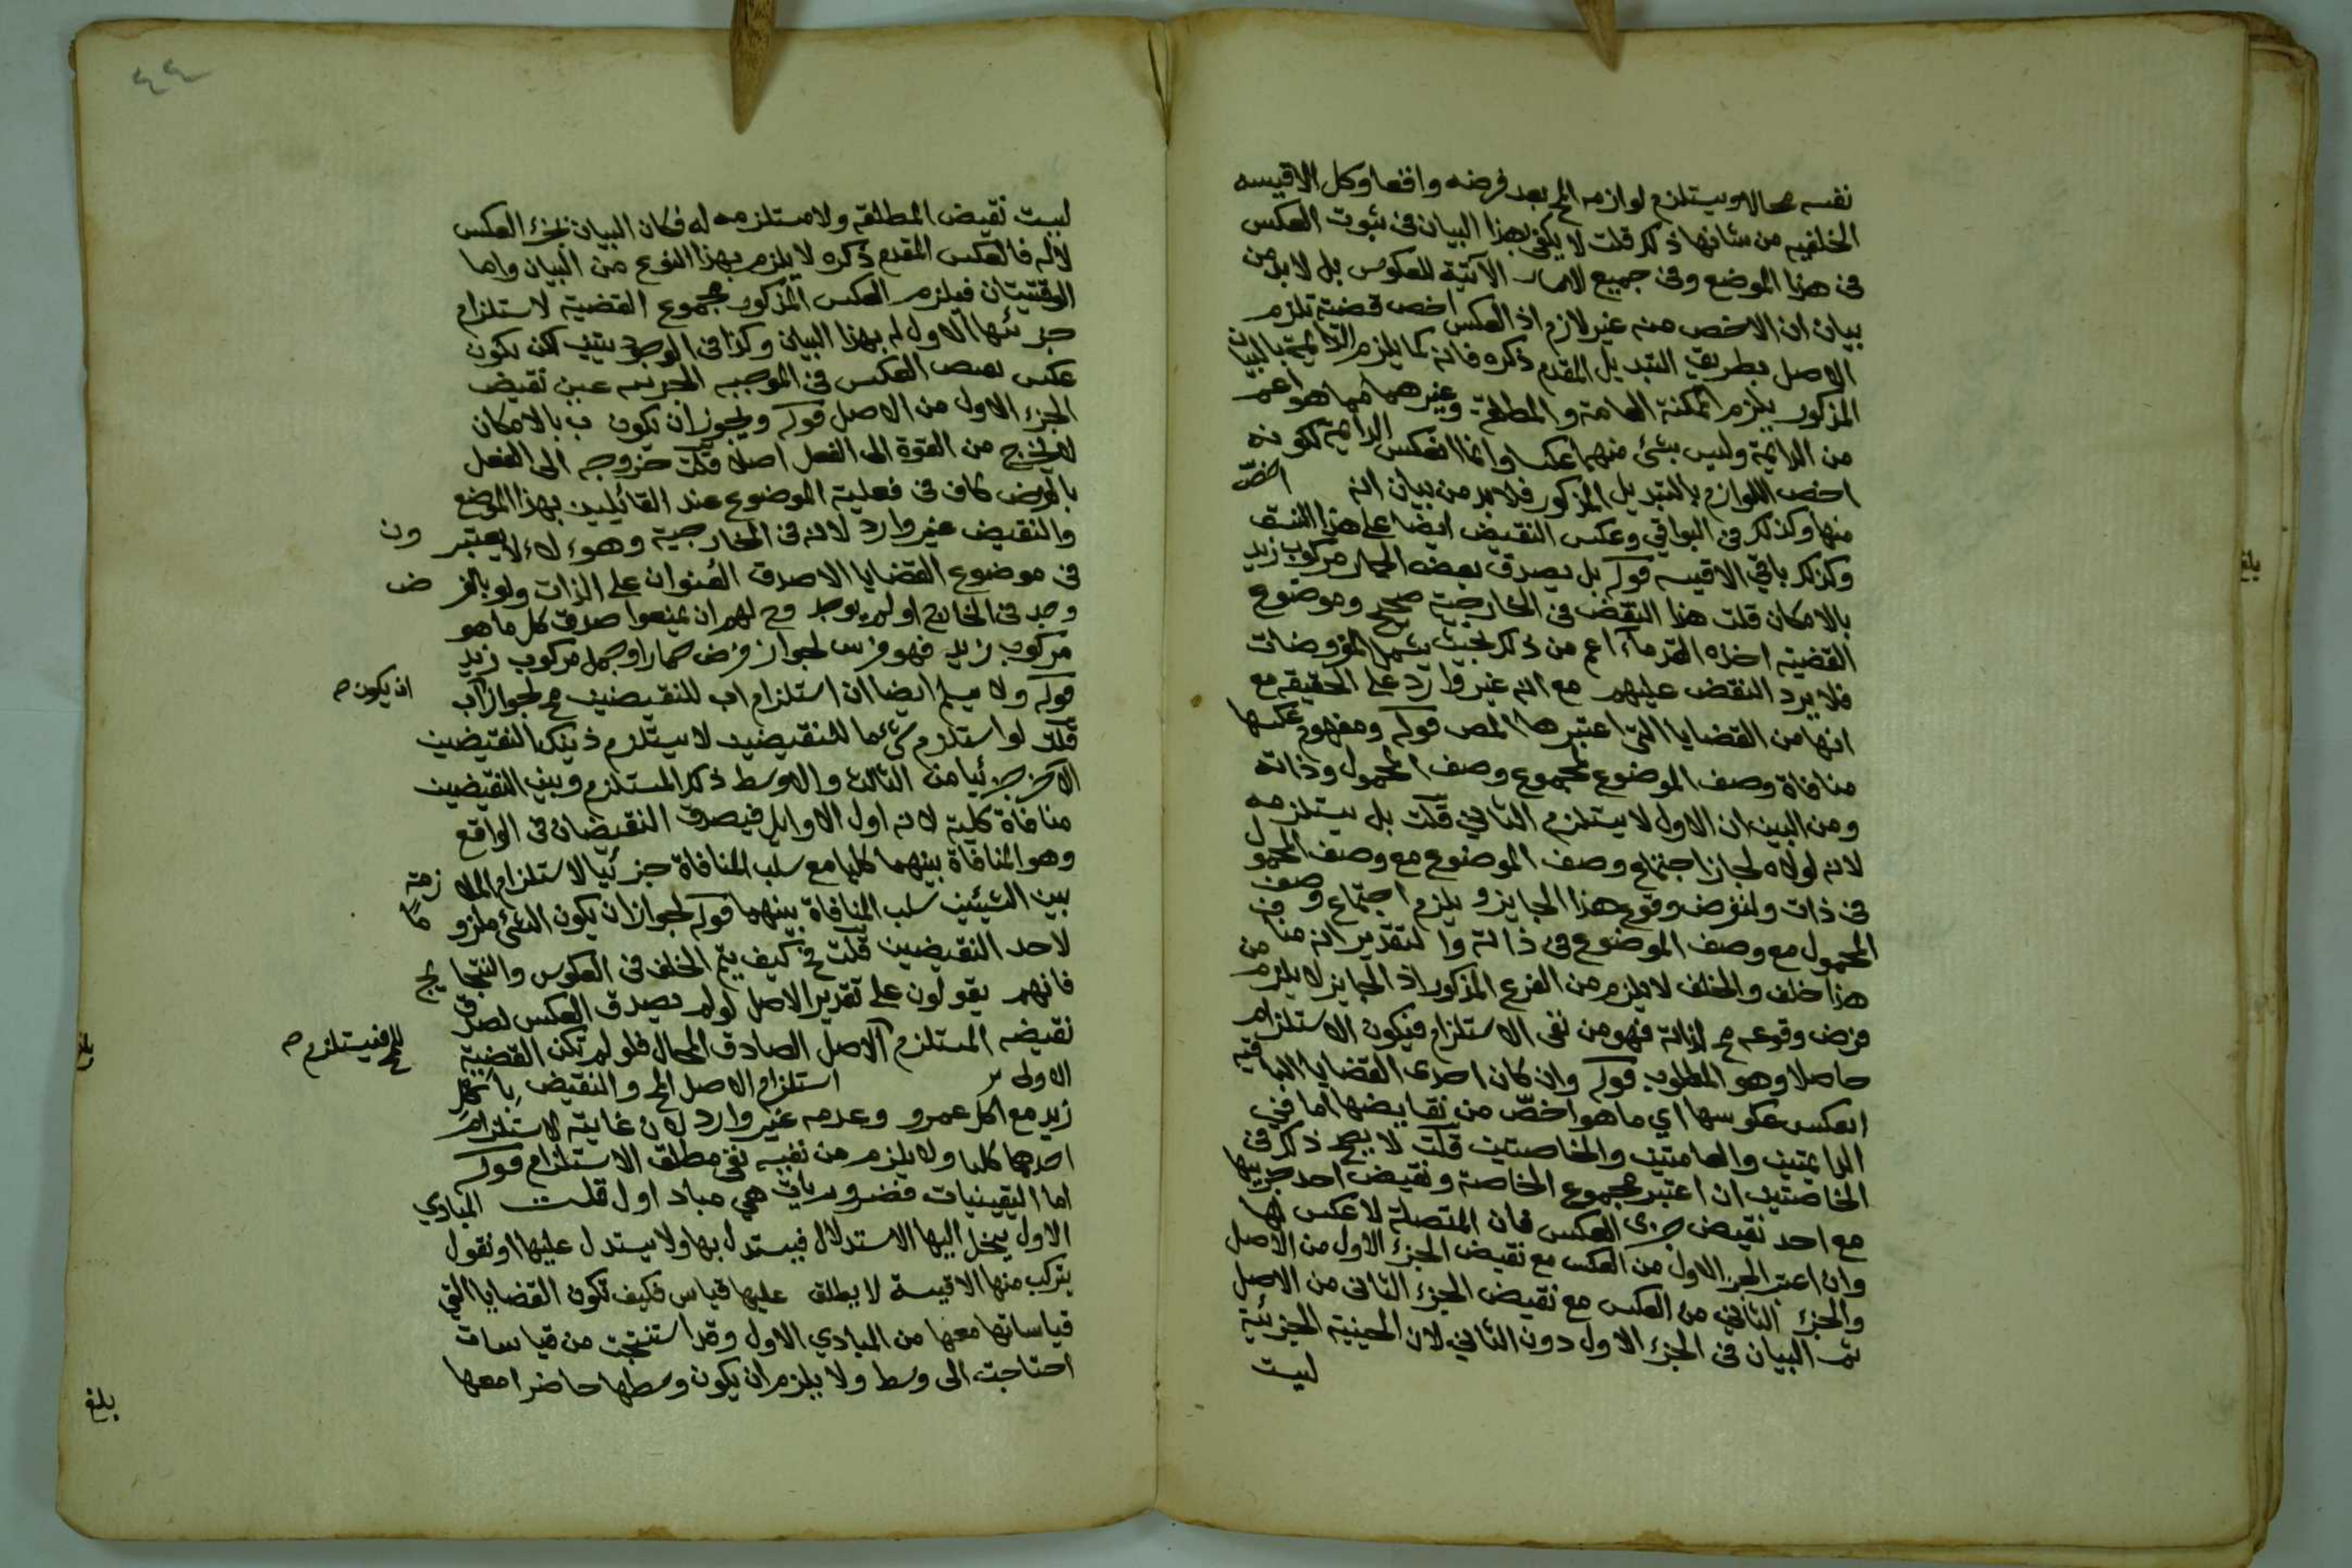 نفسه محالا ويستلزم لوازمه المح بعد فرضه واقعا وكل الاقيسه
الخلفيه من شانها ذلك قلت لا يكفي بهذا البيان في ثبوت العكس
في هذا الموضع وفي جميع الآتية للعكوس بل لا بد من
بيان ان الاخص منه غير لازم اذ العكس اخص قضية تلزم
الاصل بطريق التبديل المقدم ذكره فانه كما يلزم الدايمة بالبيان
المذكور يلزم الممكنة العامة والمطلقة وغيرهما مما هو اعم
من الدايمة وليس بشئ منهما عكسا وانما انعكس الدايمة لكونه
اخص اللوازم بالتبديل المذكور فلا بد من بيان انه اخص
منها وكذلك في البواقي وعكس النقيض ايضا على هذا النسق
وكذلك باقي الاقيسه قوله بل يصدق بعض الحمار مركوب زيد
بالامكان قلت هذا النقض في الخارجية صحيح وموضوع
القضية اخذه القدماء اعم من ذلك بحيث يشمل المفروضات
فلا يرد النقض عليهم مع انه غير وارد على الحقيقه مع
انها من القضايا التي اعتبرها المص قوله ومفهوم عكسها
منافاة وصف الموضوع لمجموع وصف المحمول وذاته
ومن البين ان الاول لا يستلزم الثاني قلت بل يستلزمه
لانه لولاه لجاز اجتماع وصف الموضوع مع وصف المحمول
في ذات ولنفرض وقوع هذا الجايز ويلزم اجتماع وصف
المحمول مع وصف الموضوع في ذاته والتقدير انه مناف
هذا خلف والخلف لا يلزم من الفرع المذكور اذ الجايز لا يلزم من
فرض وقوعه مح لذاته فهو من نفي الاستلزام فيكون الاستلزام
حاصلا وهو المطلوب قوله وان كان احدى القضايا الباقيه
انعكس عكوسها اي ما هو اخص من نقايضها اما في
الدايمتين والعامتين والخاصتين قلت لا يصح ذلك في
الخاصتين ان اعتبر مجموع الخاصة ونقيض احد جزييها
مع احد نقيض جزى العكس فان المتصلة لا عكس لها
وان اعتبر الجز الاول من العكس مع نقيض الجزء الاول من الاصل
والجزء الثاني من العكس مع نقيض الجزء الثاني من الاصل
تم البيان في الجزء الاول دون الثاني لان الحينية الجزئية
ليست
بلغ
٤٤
ليست نقيض المطلقه ولا مستلزمه له فكان البيان لجزء العكس
لا له فالعكس المقدم ذكره لا يلزم بهذا النوع من البيان واما
الوقتيتان فيلزم العكس المذكور مجموع القضية لاستلزام
جزئها الاول له بهذا البيان وكذا في الوجوديتين لكن يكون
عكس بعض العكس في الموجبه الجزييه عين نقيض
الجزء الاول من الاصل قوله ويجوز ان يكون ب بالامكان
لا يخرج من القوة الى الفعل اصلا قلت خروجه الى الفعل
بالفرض كاف في فعلية الموضوع عند القائلين بهذا الموضع
والنقيض غير وارد لانه في الخارجية وهوء لاء لا يعتبرون
في موضوع القضايا الا صدق العنوان على الذات ولو بالفرض
وجد في الخارج او لم يوجد وح لهم ان يمنعوا صدق كل ما هو
مركوب زيد فهو فرس لجواز فرض حمار او جمل مركوب زيد
قوله ولا يسلم ايضا ان استلزام اب للنقيضين مح لجواز اب
ان يكون صح
قلت لو استلزم شئ ما للنقيضين لاستلزم ذينك النقيضين
الاخر جزئيا من الثالث والاوسط ذلك المستلزم وبين النقيضين
منافاة كلية لانه اول الاوايل فيصدق النقيضان في الواقع
وهو المنافاة بينهما كليا مع سلب المنافاة جزئيا لاستلزام الملازمة
بين الشيئين سلب المنافاة بينهما قوله لجواز ان يكون الشئ ملزوما
لاحد النقيضين قلت فح كيف يتم الخلف في العكوس والنتايج
فانهم يقولون على تقدير الاصل لو لم يصدق العكس لصدق
نقيضه المستلزم الاصل الصادق المحال فلو لم تكن القضية
للمح فيستلزم صح
الاولى استلزام الاصل المح والنقيض باكل
زيد مع اكل عمرو وعدمه غير وارد لان غايته الاستلزام
احدهما كليا ولا يلزم من نفيه نفي مطلق الاستلزام قوله
اما اليقينيات فضروريات هي مباد اول قلت المبادي
الاول ينحل اليها الاستدلال فيستدل بها ولا يستدل عليها او نقول
يتركب منها الاقيسة لا يطلق عليها قياس فكيف تكون القضايا التي
قياساتها معها من المبادي الاول وقد استنتجت من قياسات
احتاجت الى وسط ولا يلزم ان يكون وسطها حاضرا معها
بلغ
بلغ